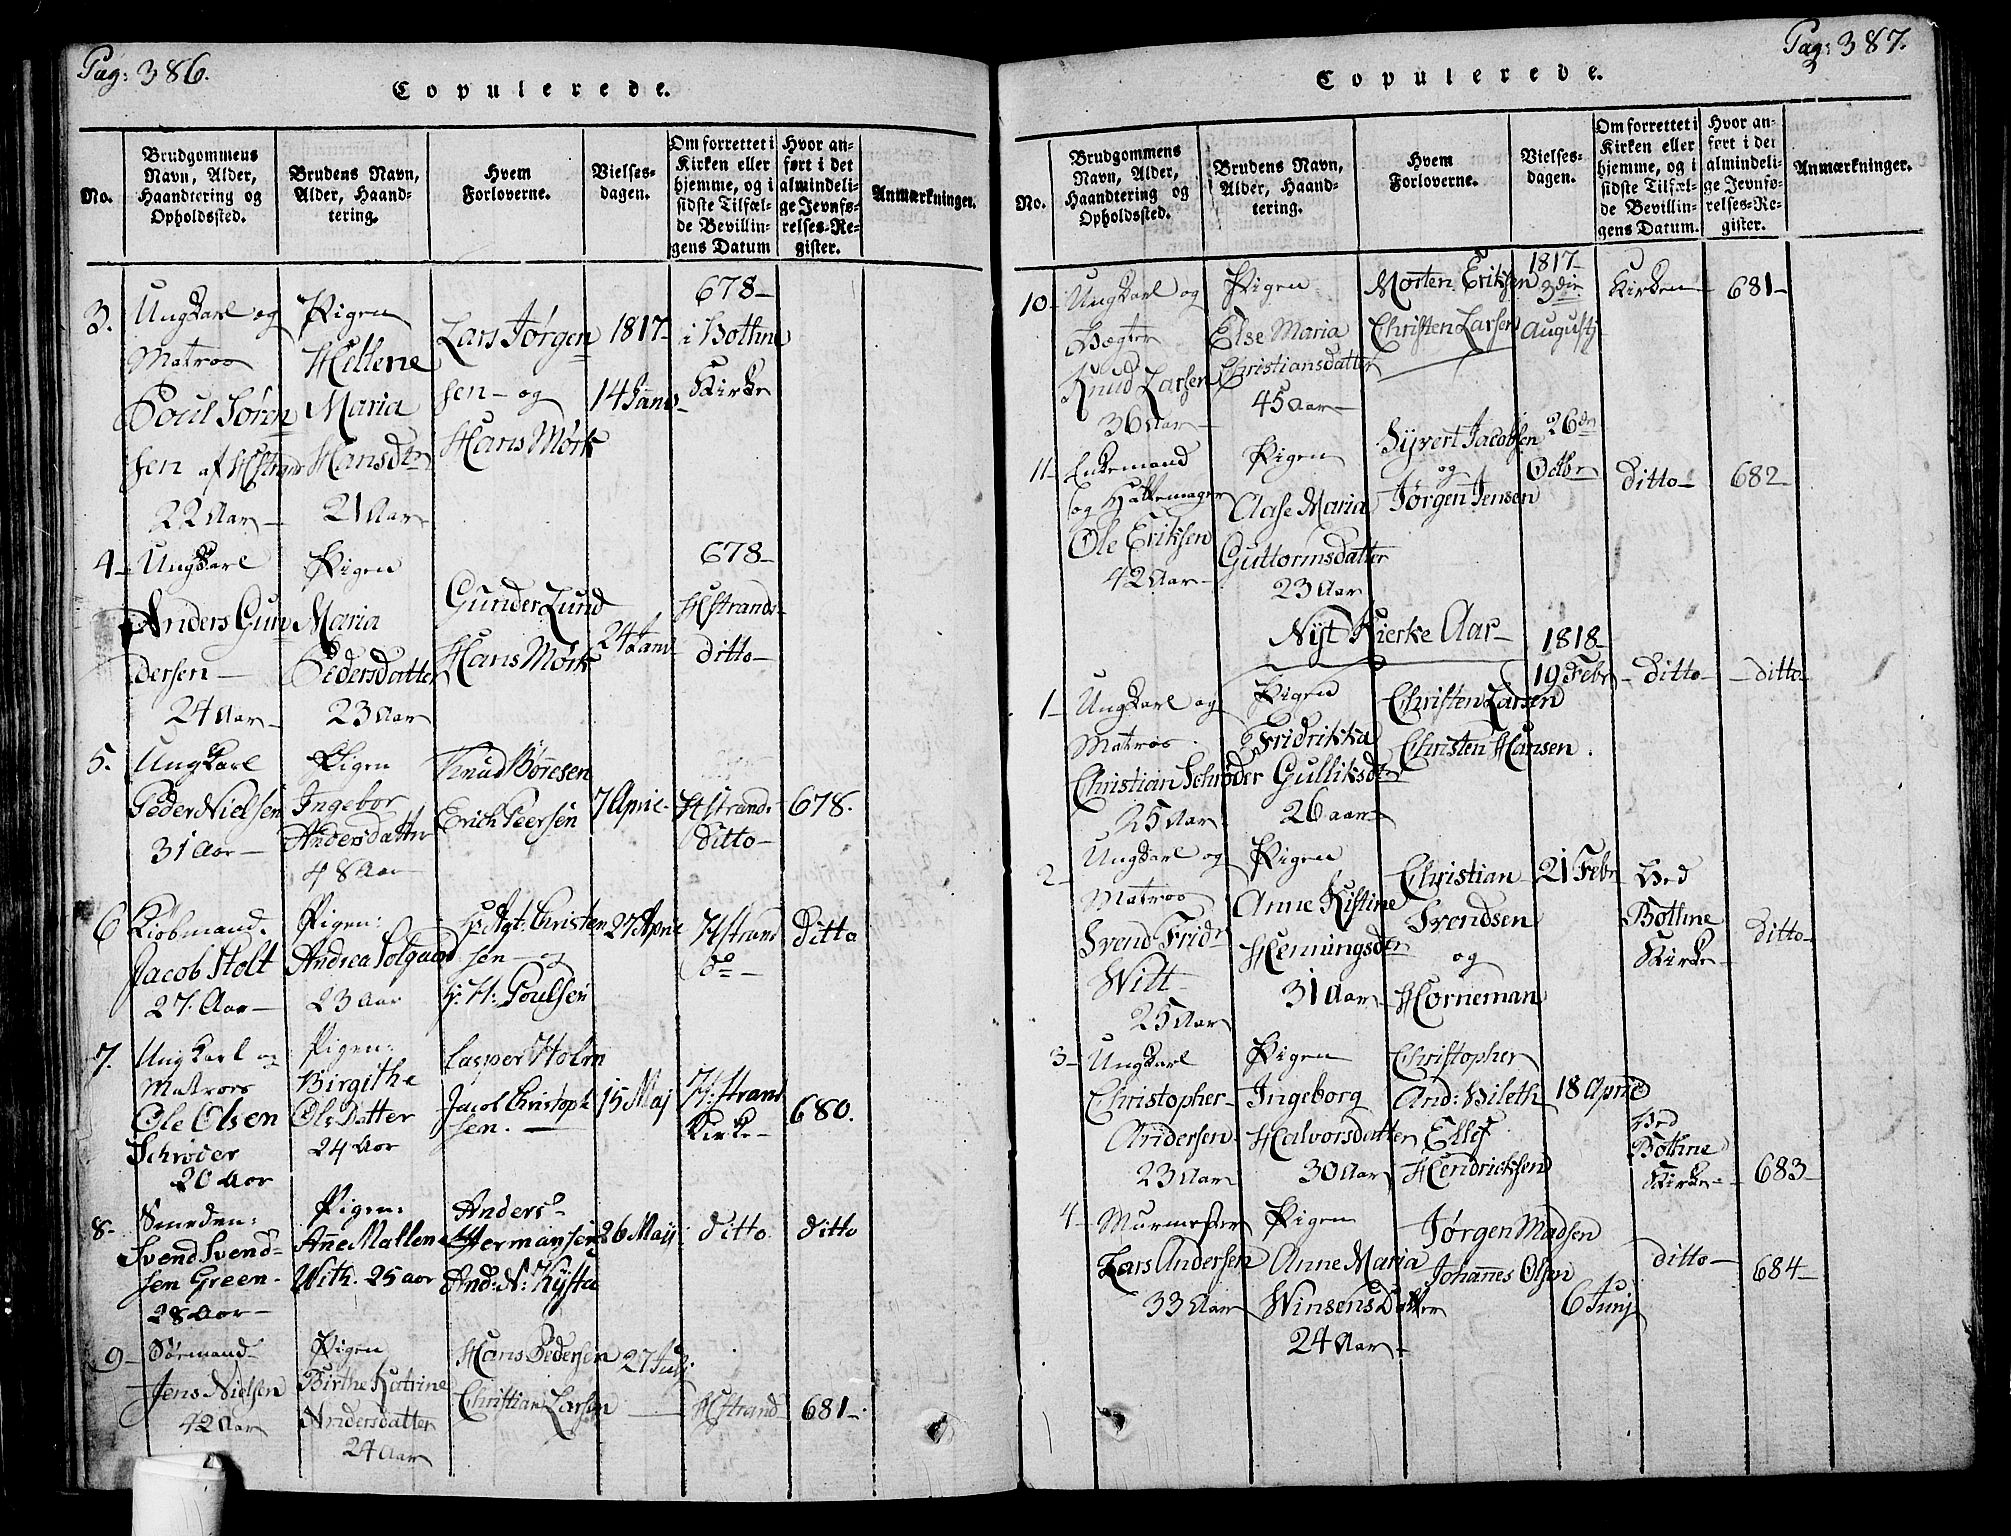 Pag: 386.
Copulerede.
No.
Brudgommens
Navn, Alder,
Haandtering og
Opholdssted.
Brudens Navn,
Alder, Haand-
tering.
Hvem
Forloverne.
Vielses-
dagen.
Om forrettet i
Kirken eller
hjemme, og i
sidste Tilfæl-
de Bevillin-
gens Datum
Hvor an-
ført i det
almindeli-
ge Jevnfø-
relses-Re-
gister.
Anmærkninger.
3.
Ungkarl og
Matros
Poul Søren
sen af HStrand
22 Aar
Pigen
Hellene
Maria
Hansdtr
21 Aar
Lars Jørgen
sen - og
Hans Mørk
1817-
14 Janv
678-
i Bothne
Kirke
4-
Ungkarl
Anders Gun
dersen -
24 Aar -
Pigen
Maria
Pedersdatter
23 Aar
Gunder Lund
Hans Mørk
24 Janv
678-
HStrands
ditto-
5.
Ungkarl
Peder Nielsen
31 Aar -
Pigen
Ingebor
Andersdatter
48 Aar
Knud Börresen
Erich Peersen
7 April-
HStrands
ditto-
678.
6
Kiøbmand.
Jacob Stolt
27. Aar -
Pigen:
Andrea Solgaard
23 Aar
Hr Agt: Christen
sen - og
Hr: H: Poulsen
27 April
HStrand
Do -
Ditto
7.
Ungkarl og
Matros
Ole Olsen
Schrøder
20 Aar
Pigen:
Birgithe
Ols Datter
24 Aar
Casper Holm
Jacob Christoph
sen. -
15 Maj
H: Strand
Kirke-
680.
8-
Smeden:
Svend Svend-
sen Green-
28 Aar -
Pigen:
Anne Mallene
With. 25 aar
Anders
Hermansen
And: N: Kysta
26 Maij
ditto
ditto
9-
Sørmand
Jens Nielsen
42 Aar
Pigen
Birthe Katrine
Andersdatter
24 Aar
Hans Pedersen
Christian Larsen
27 Julj
HStrand
681-
Pag: 387.
Copulerede.
No.
Brudgommens
Navn, Alder,
Haandtering og
Opholdssted.
Brudens Navn,
Alder, Haand-
tering.
Hvem
Forloverne.
Vielses-
dagen.
Om forrettet i
Kirken eller
hjemme, og i
sidste Tilfæl-
de Bevillin-
gens Datum.
Hvor an-
ført i det
almindeli-
ge Jevnfø-
relses-Re-
gister.
Anmærkninger.
10-
Ungkarl og
Knud Larsen
36 Aar -
Pigen
Else Maria
Christiansdatter
45 Aar -
Morten Eriksen
Christen Larsen
1817-
3die
Augustj
Kirken-
681-
11-
Enkemand
og Hattemager
Ole Eriksen
42 Aar -
Pigen
Aase Maria
Guttormsdatter
23 Aar
Syvert Jacobsen
og
Jørgen Jensen
26de
Octbr
ditto-
682-
Nyt Kierke Aar - 1818-
1-
Ungkarl og
Matros
Christian Schrøder
25 Aar
Pigen
Fridrikka
Gulliksdtr
26 aar-
Christen Larsen
Christen Hansen.
19 Febr
- ditto-
- ditto-
2-
Ungkarl og
Matros
Svend Fridr
Witt-
25 Aar
Pigen
Anne Kistine
Hemingsdtr
31 Aar -
Christian
Svendsen
og
Horneman
21 Febr
Ved
Bothne
Kirke-
ditto-
3-
Ungkarl
Christopher
Andersen
23 Aar
Pigen
Ingeborg
Halvorsdatter
30 Aar
Christopher
And: Bileth
Ellef
Hendricksen
18 April
Ved
Bothne
Kirke-
683-
4-
Murmester
Lars Andersen
33 Aar
Pigen
Anne Maria
Winsens Datter
24 Aar-
Jørgen Madsen
Johannes Olsen
6 Junj
ditto-
684-